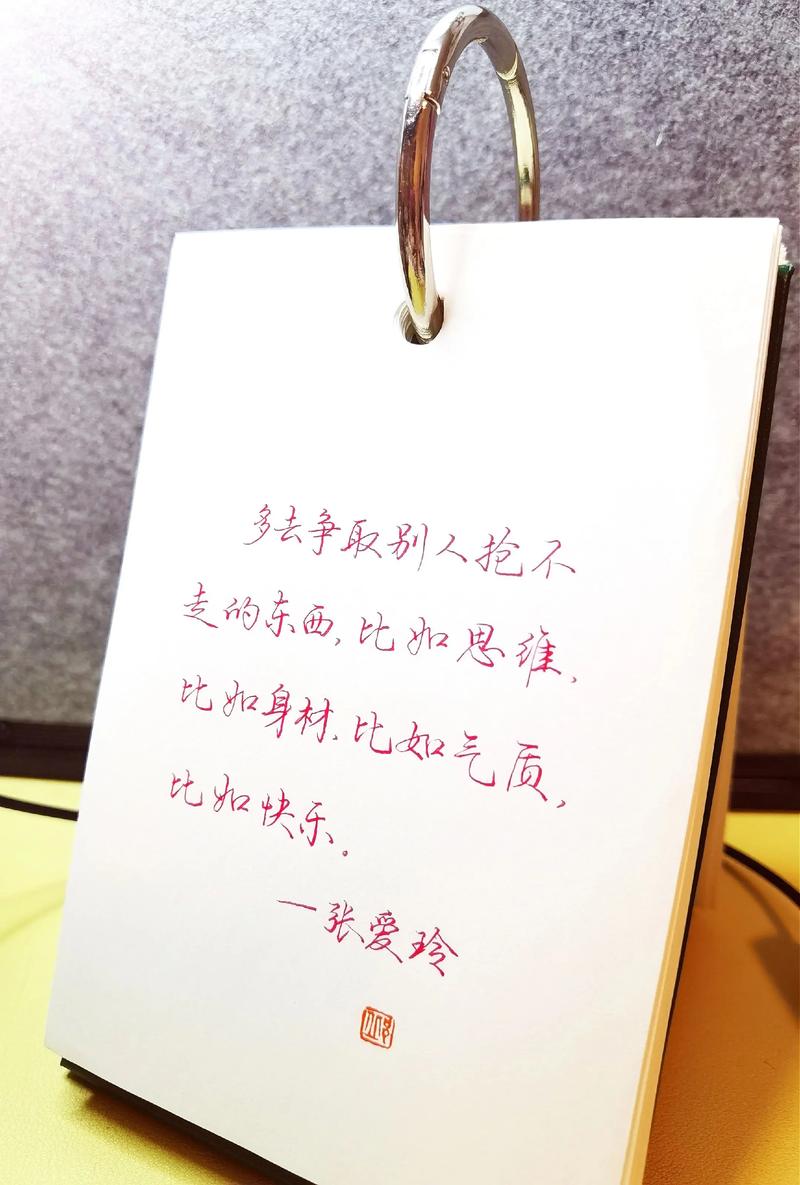 多去争取别人抢不
走的东西,比如思维,
比如身材,比如气质,
比如快乐.
—张爱玲